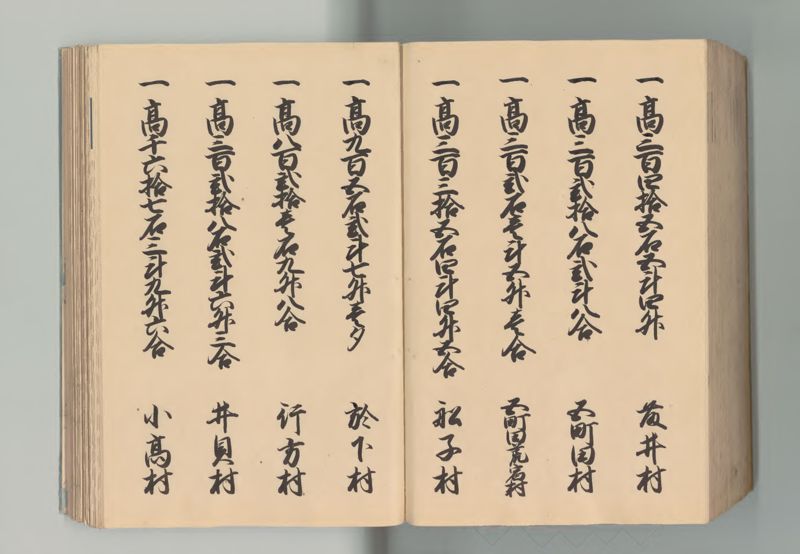 一高三百四拾五石五斗四升 藤井村
一高三百弐拾八石弐斗八合 五町田村
一高三百弐石壱斗五升壱合 五町田荒宿村
一高三百三拾五石四斗四升五合 船子村
一高九百五石弐斗七升壱夕 於下村
一高八百弐拾壱石九升八合 行方村
一高三百弐拾八石弐斗六升三合 井貝村
一高千六拾七石三斗九升六合 小高村